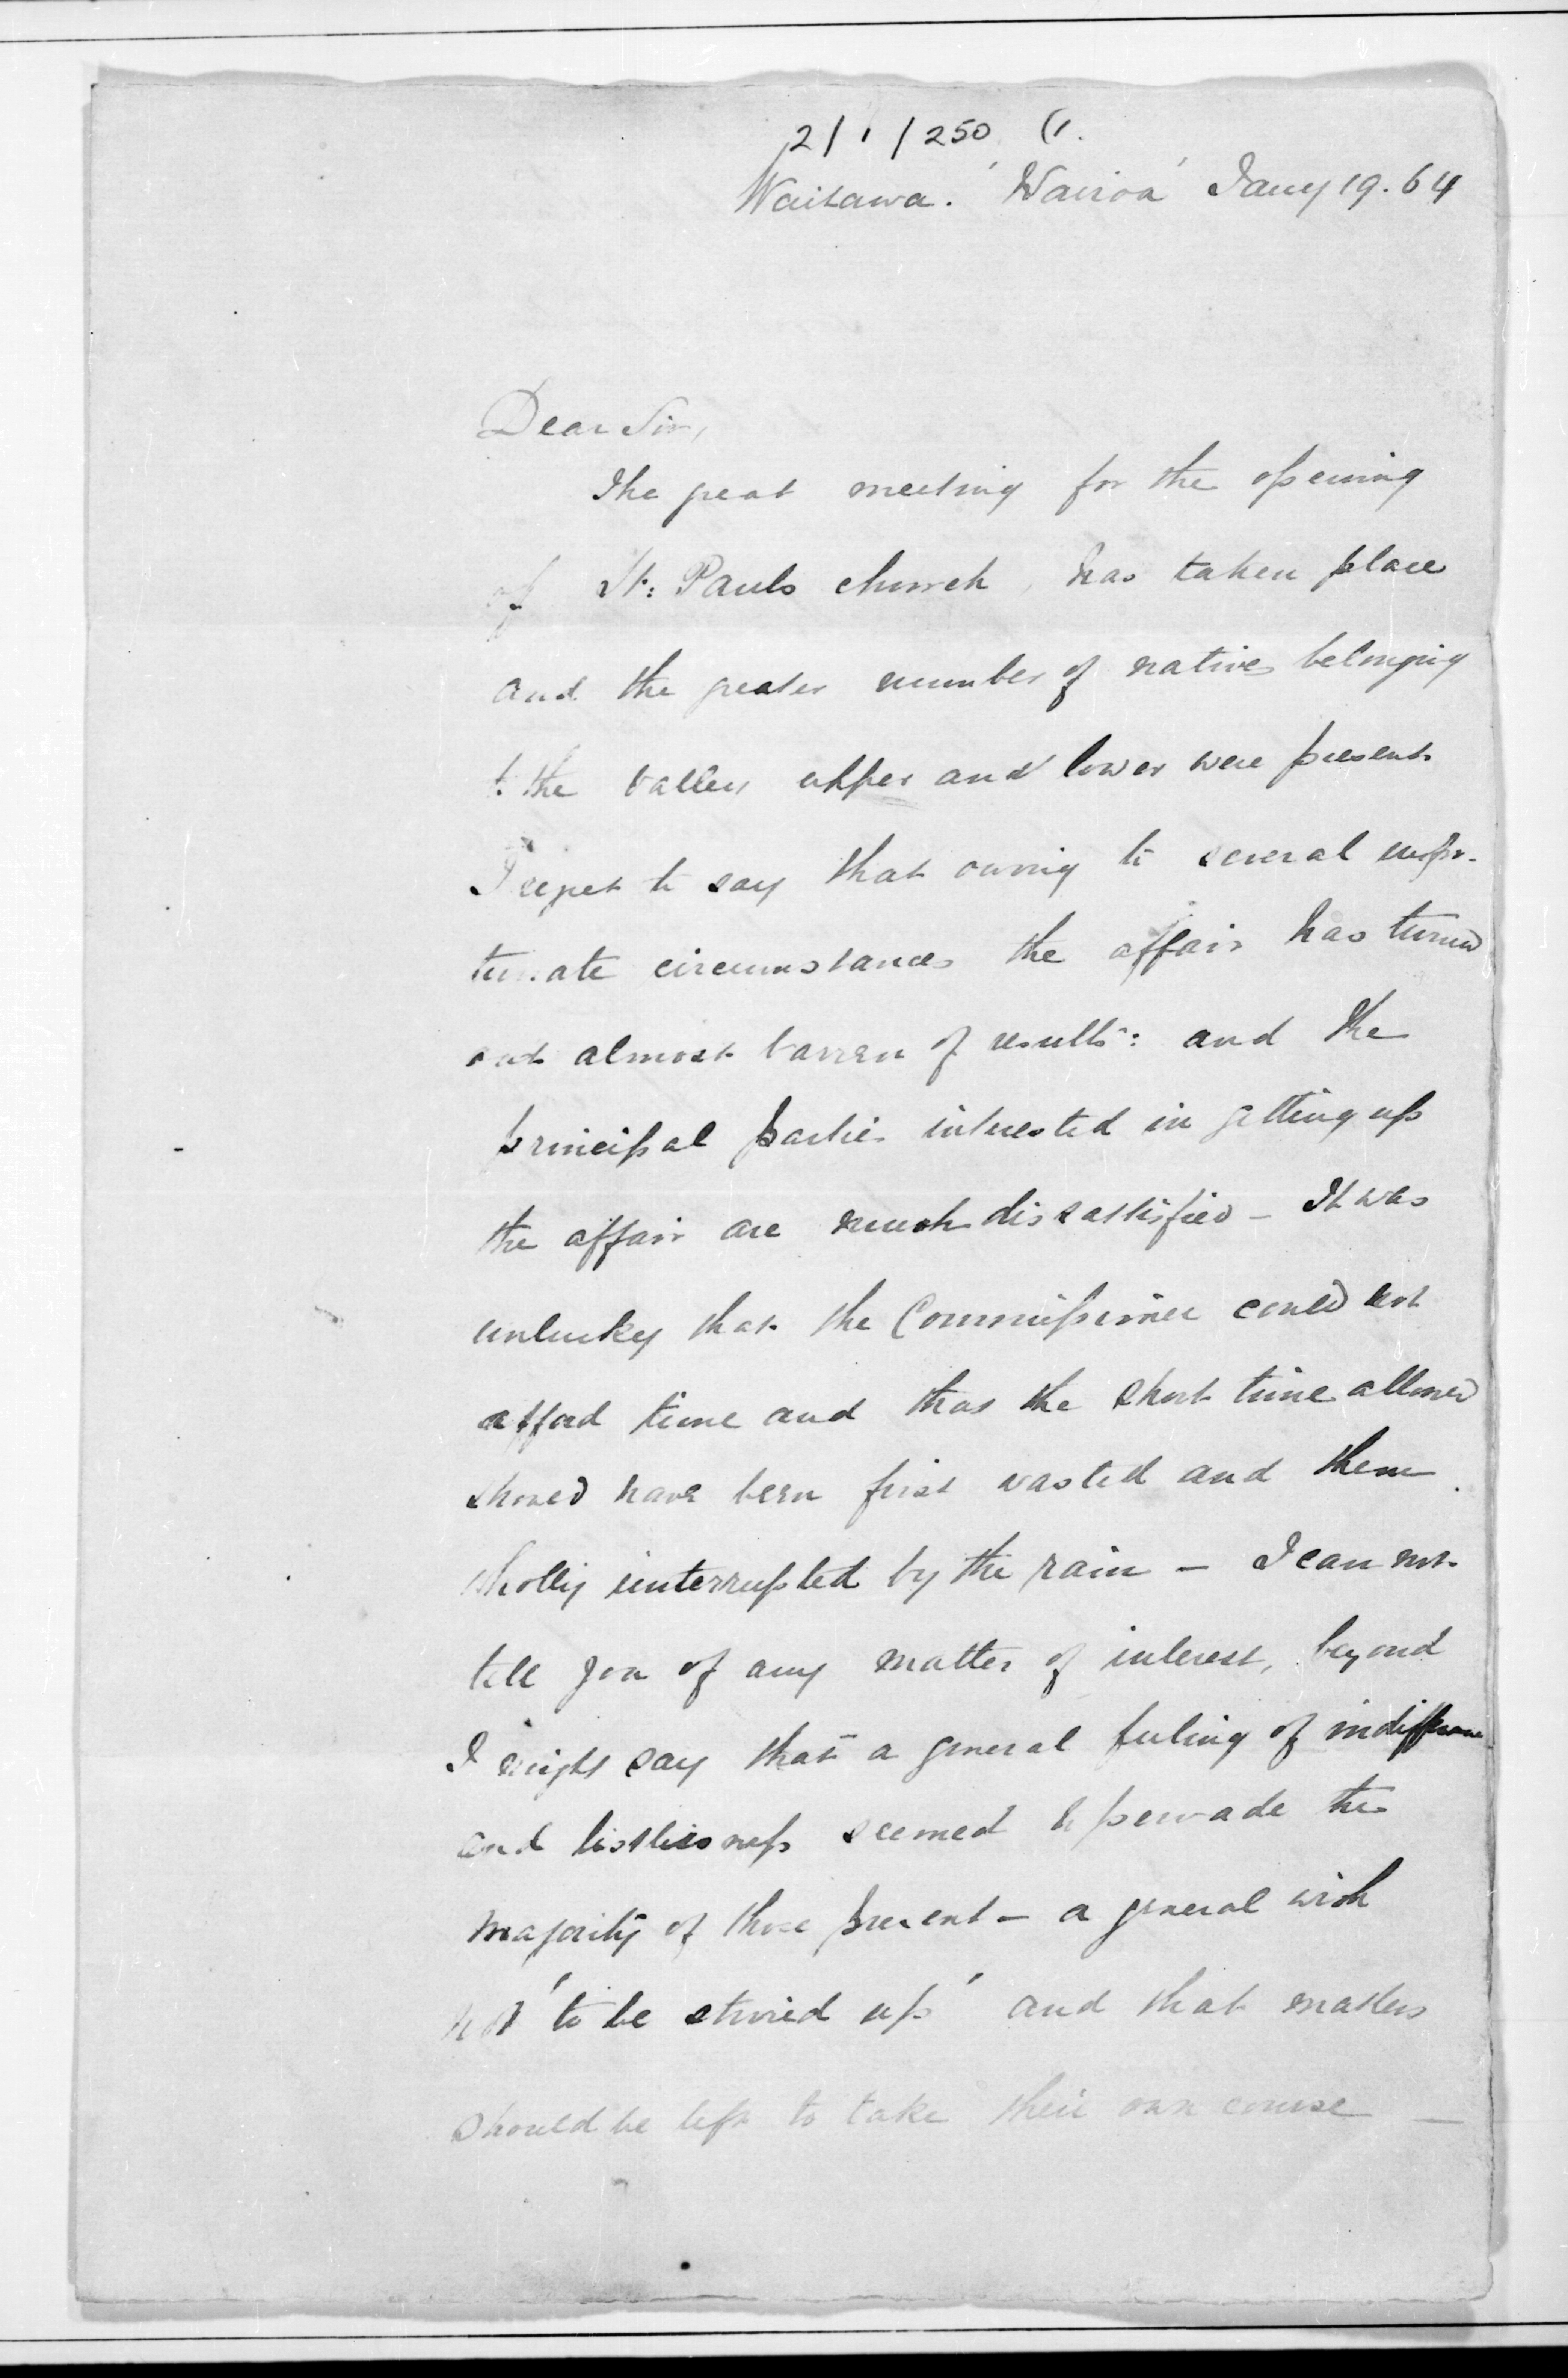 2/1/250 (1.
Waitawa. 'Wairoa' Jany 19. 64
Dear Sir,
The great meeting for the opening
of St: Pauls church, has taken place
and the greater number of natives belonging
to the valley upper and lower were present.
I regret to say that owing to several unfor-
tunate circumstances the affair has turned
out almost barren of results: and the
principal parties interested in getting up
the affair are much dissatisfied - It was
unlucky that the Commissioner could not
afford time and that the short time allowed
should have been first wasted and then
wholly interrupted by the rain - I can not
tell you of any matter of interest, beyond
I might say that a general feeling of indifference
and listlessness seemed to pervade the
majority of those present - a general wish
not 'to be stirred up' and that matters
should be left to take their own course -